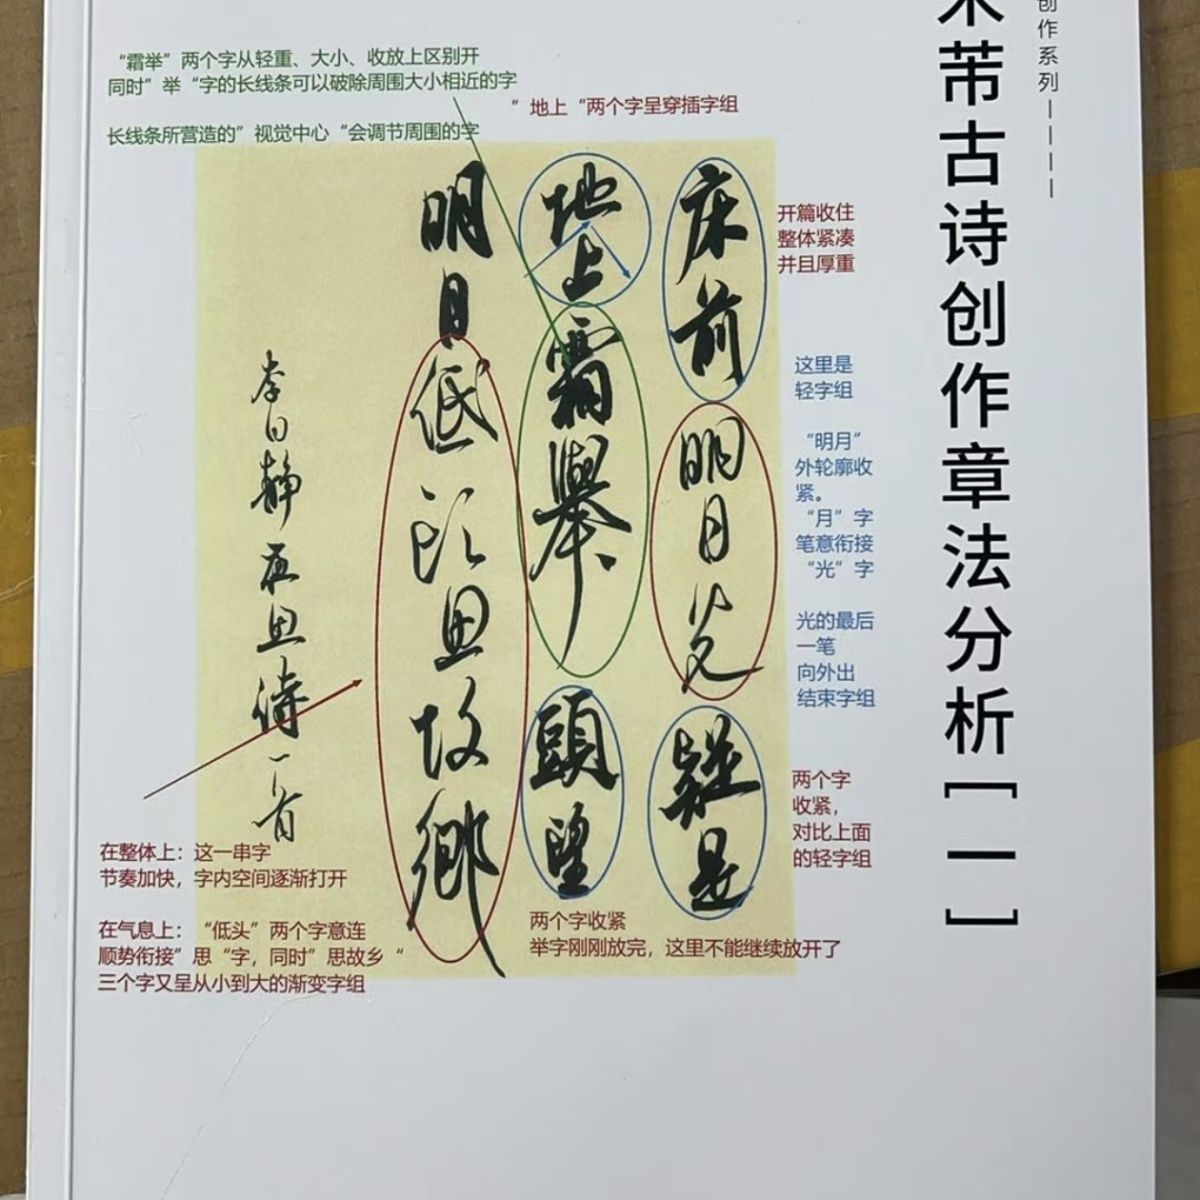 创作系列————
米芾古诗创作章法分析[一]
“霜举”两个字从轻重、大小、收放上区别开
同时”举“字的长线条可以破除周围大小相近的字
长线条所营造的”视觉中心“会调节周围的字
”地上“两个字呈穿插字组
开篇收住
整体紧凑
并且厚重
这里是
轻字组
“明月”
外轮廓收
紧。
“月”字
笔意衔接
“光”字
光的最后
一笔
向外出
结束字组
两个字
收紧，
对比上面
的轻字组
床前明月光疑是
地上霜舉頭望
明月低头思故鄉
李白静夜思诗一首
在整体上：这一串字
节奏加快，字内空间逐渐打开
在气息上：“低头”两个字意连
顺势衔接”思“字，同时”思故乡“
三个字又呈从小到大的渐变字组
两个字收紧
举字刚刚放完，这里不能继续放开了